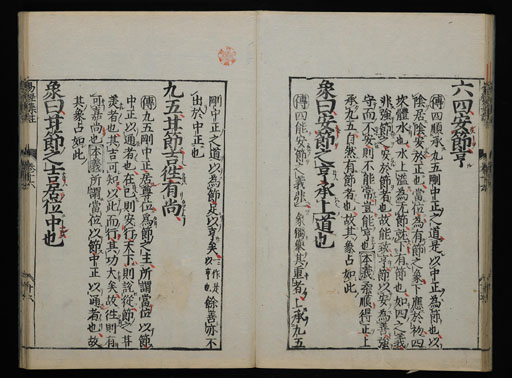 六四安節亨
傳四順承九五剛中正之道是以中正為節也以
陰居陰安於正也當位為有節之象下應於初四
坎體水也水上溢為无節就下有節也如四之義
非強節之安於節者也故能致亨節以安為善強
守而不安則不能常豈能亨也本義柔順得正上
承九五自然有節者也故其象占如此
象曰安節之亨承上道也
傳四能安節之義非一象獨舉其重者上承九五
剛中正之道以為節足以亨矣餘善亦不
出於中正也
九五甘節吉往有尚
傳九五剛中正居尊位為節之主所謂當位以節
中正以通者也在已則安行天下則說從節之甘
美者也其吉可知以此而行其功大矣故往則有
可嘉尚也本義所謂當位以節中正以通者也故
其象占如此
象曰甘節之吉居位中也